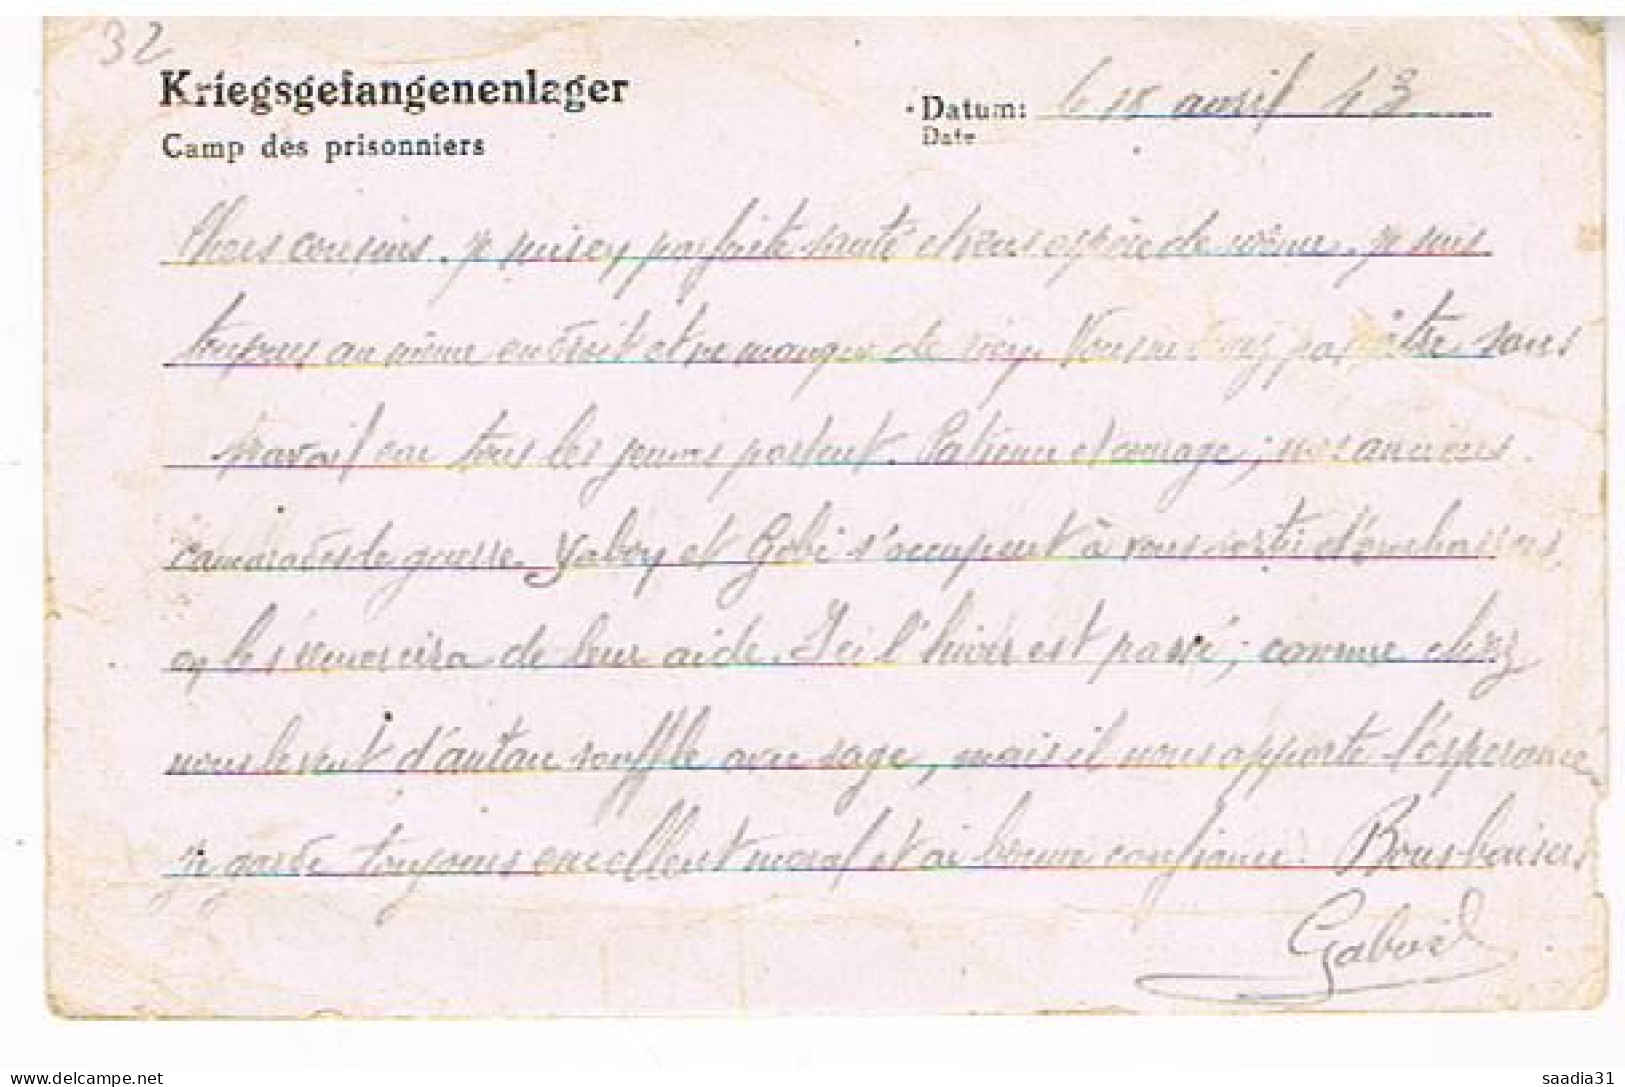 32
Kriegsgefangenenlager
Camp des prisonniers
Datum: le 18 avril 43
Date
Chers cousins. je suis en parfaite santé et vous espère de même. je suis
toujours au même endroit et ne manque de rien Vous ne devez pas être sans
travail car tous les jeunes partent. Patience et courage; mes anciens
camarades de guerre. Yaboy et Gobi s'occupent à vous sortir d'embarras
on les remerciera de leur aide. Ici l'hiver est passé; comme chez
nous le vent d'autan souffle avec rage, mais il nous apporte l'espérance
je garde toujours excellent moral et ai bonne confiance. Bons baisers
Gabriel
saadia31
delcampe.net